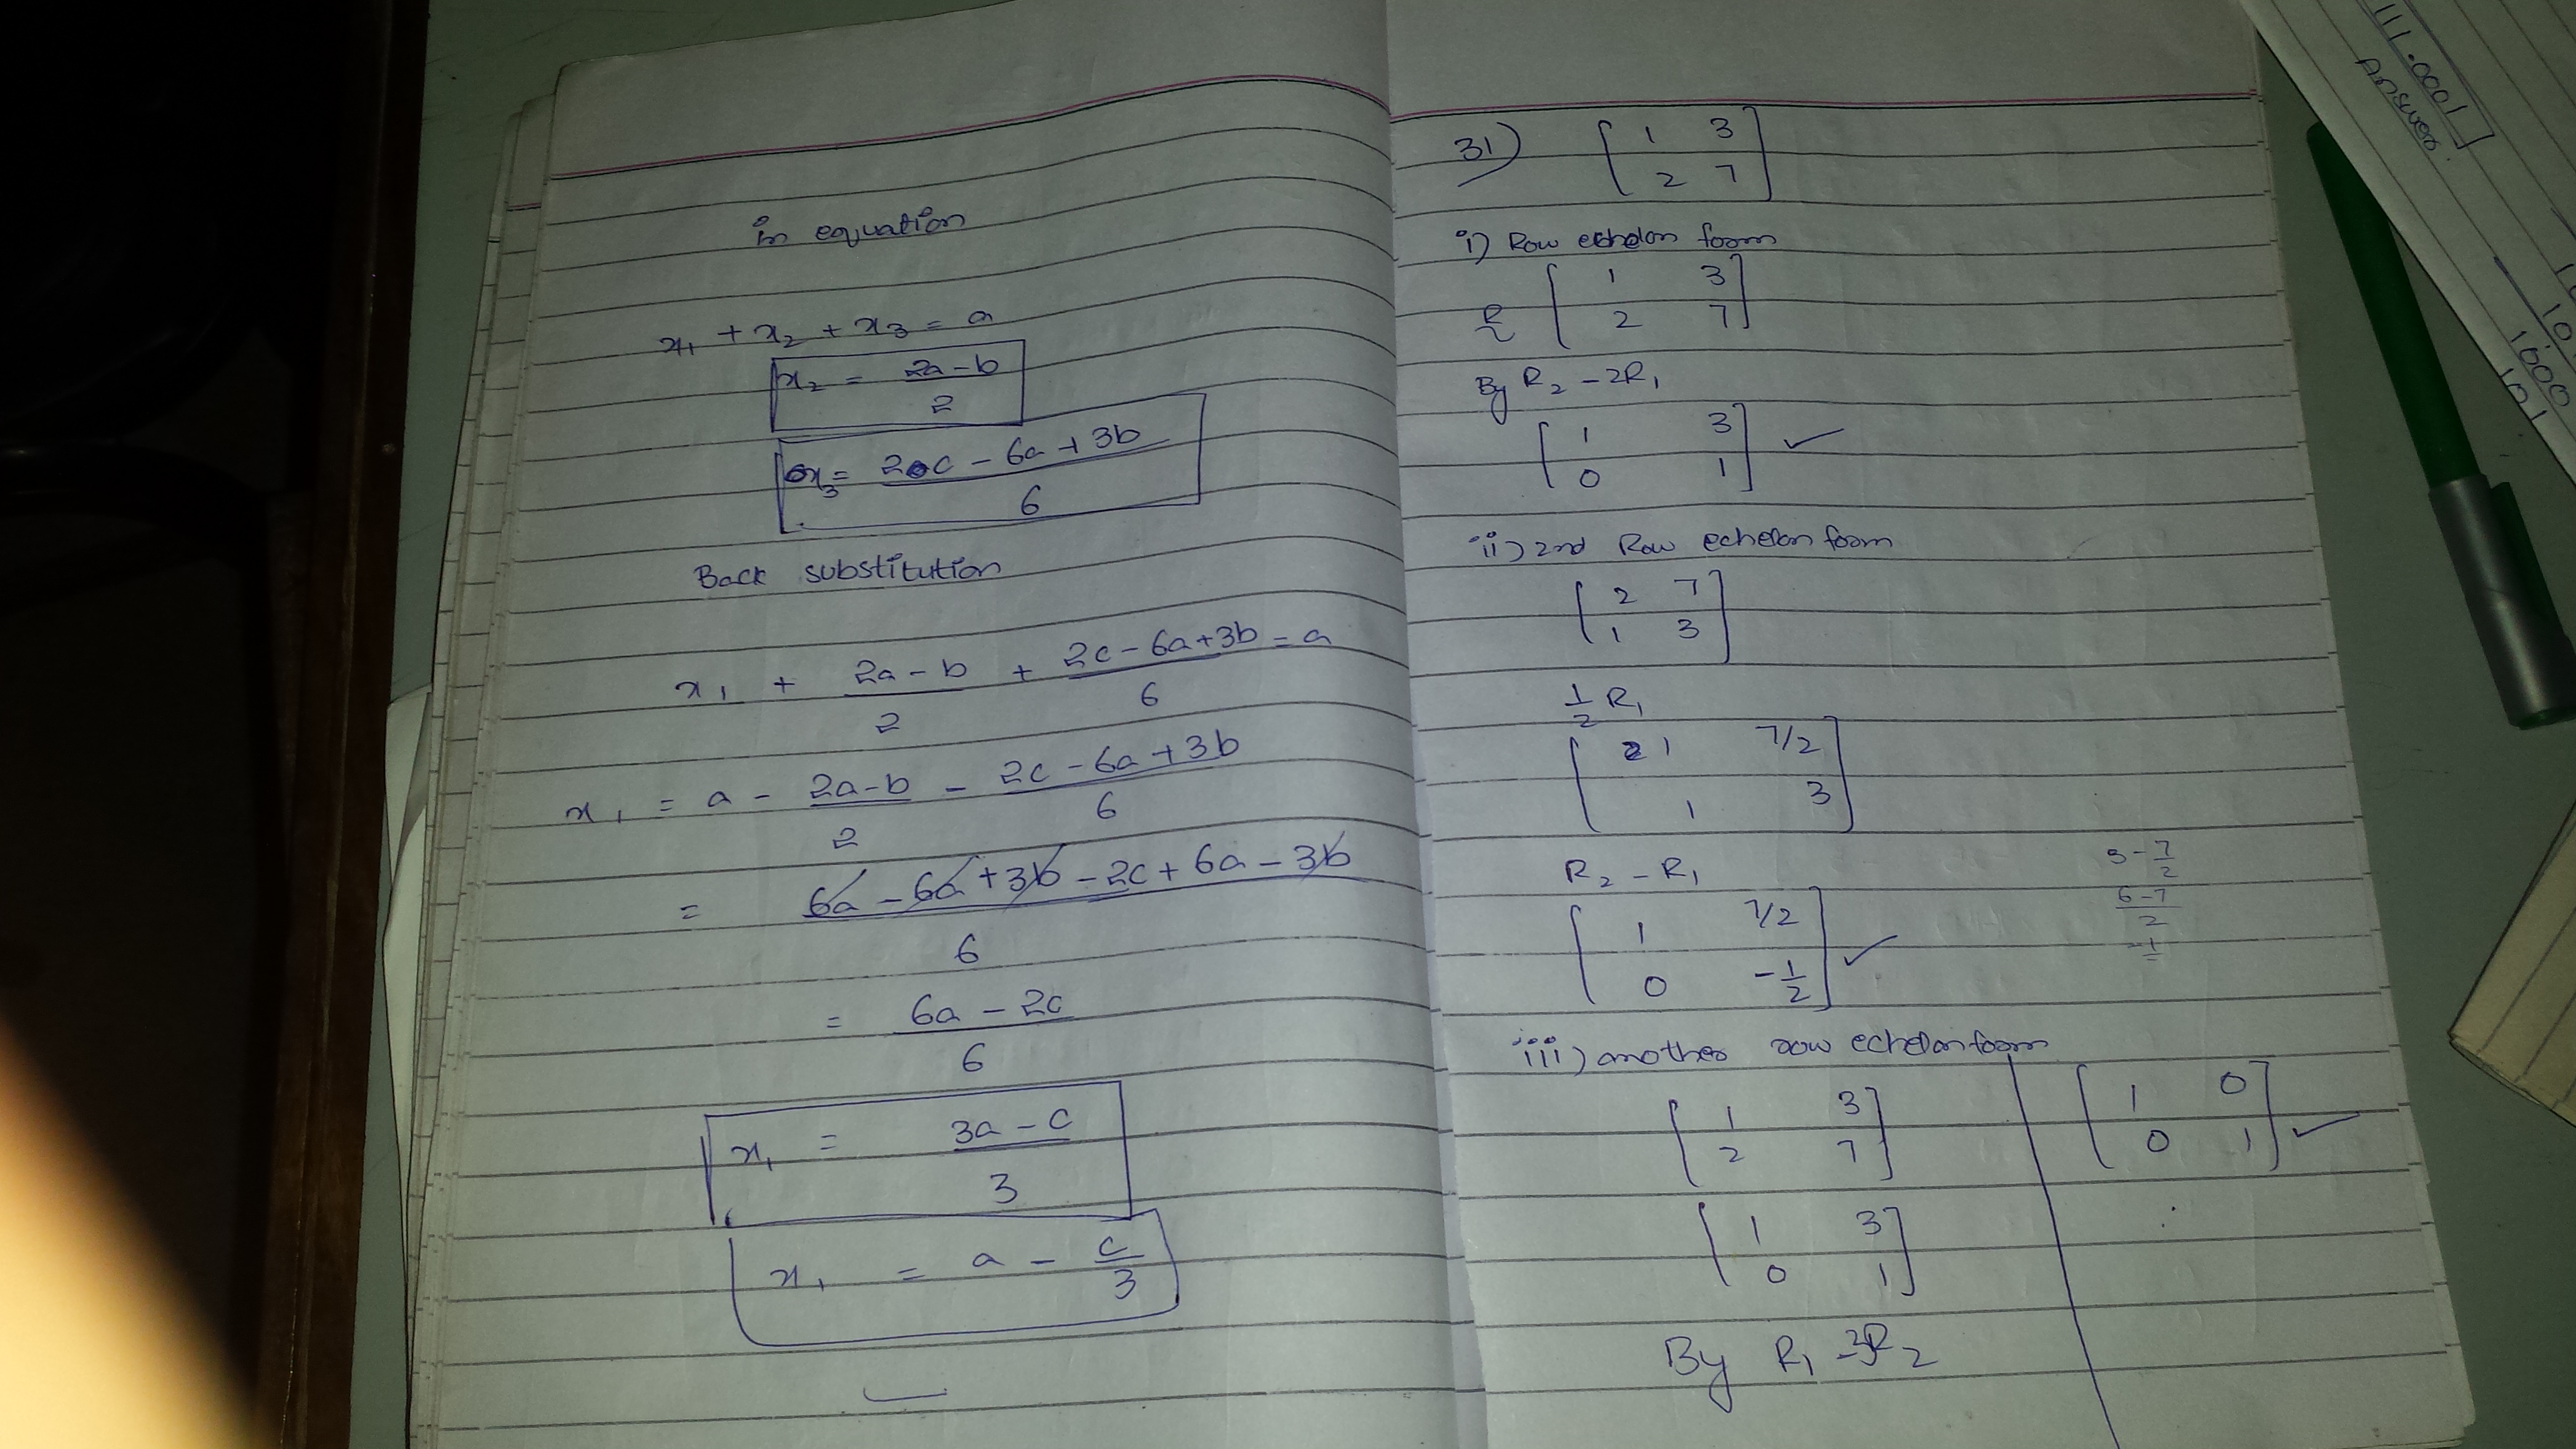 in equation
x₁ + x₂ + x₃ = a
x₂ = 2a - b / 2
x₃ = 2c - 6a + 3b / 6
Back substitution
x₁ + 2a - b / 2 + 2c - 6a + 3b / 6 = a
x₁ = a - 2a - b / 2 - 2c - 6a + 3b / 6
= 6a - 6a + 3b - 2c + 6a - 3b / 6
= 6a - 2c / 6
x₁ = 3a - c / 3
x₁ = a - c/3
31) [ 1 3
2 7 ]
i) Row echelon form
[ 1 3
2 7 ]
By R₂ - 2R₁
[ 1 3
0 1 ] ✓
ii) 2nd Row echelon form
[ 2 7
1 3 ]
1/2 R₁
[ 1 7/2
1 3 ]
R₂ - R₁
[ 1 7/2
0 -1/2 ] ✓
3 - 7/2
6-7 / 2
iii) another row echelon form
[ 1 3
2 7 ]
[ 1 3
0 1 ]
By R₁ - 3R₂
[ 1 0
0 1 ] ✓
111.0001
Answer.
1000
101